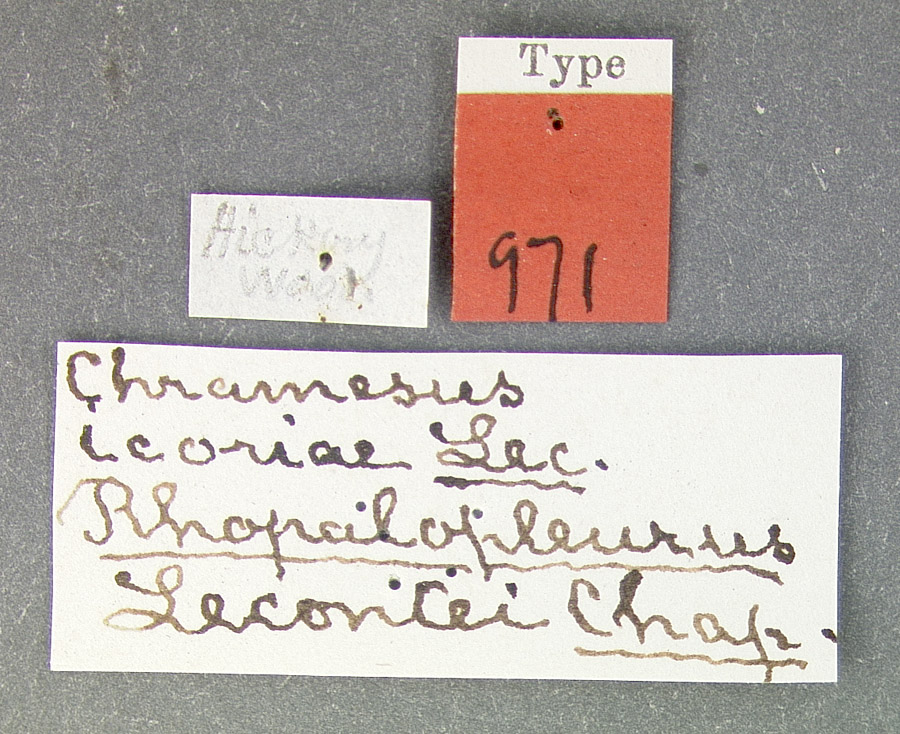 Type
971
Hickory
Wood
Chramesus
icoriae Lec.
Rhopalopleurus
Lecontei Chap.